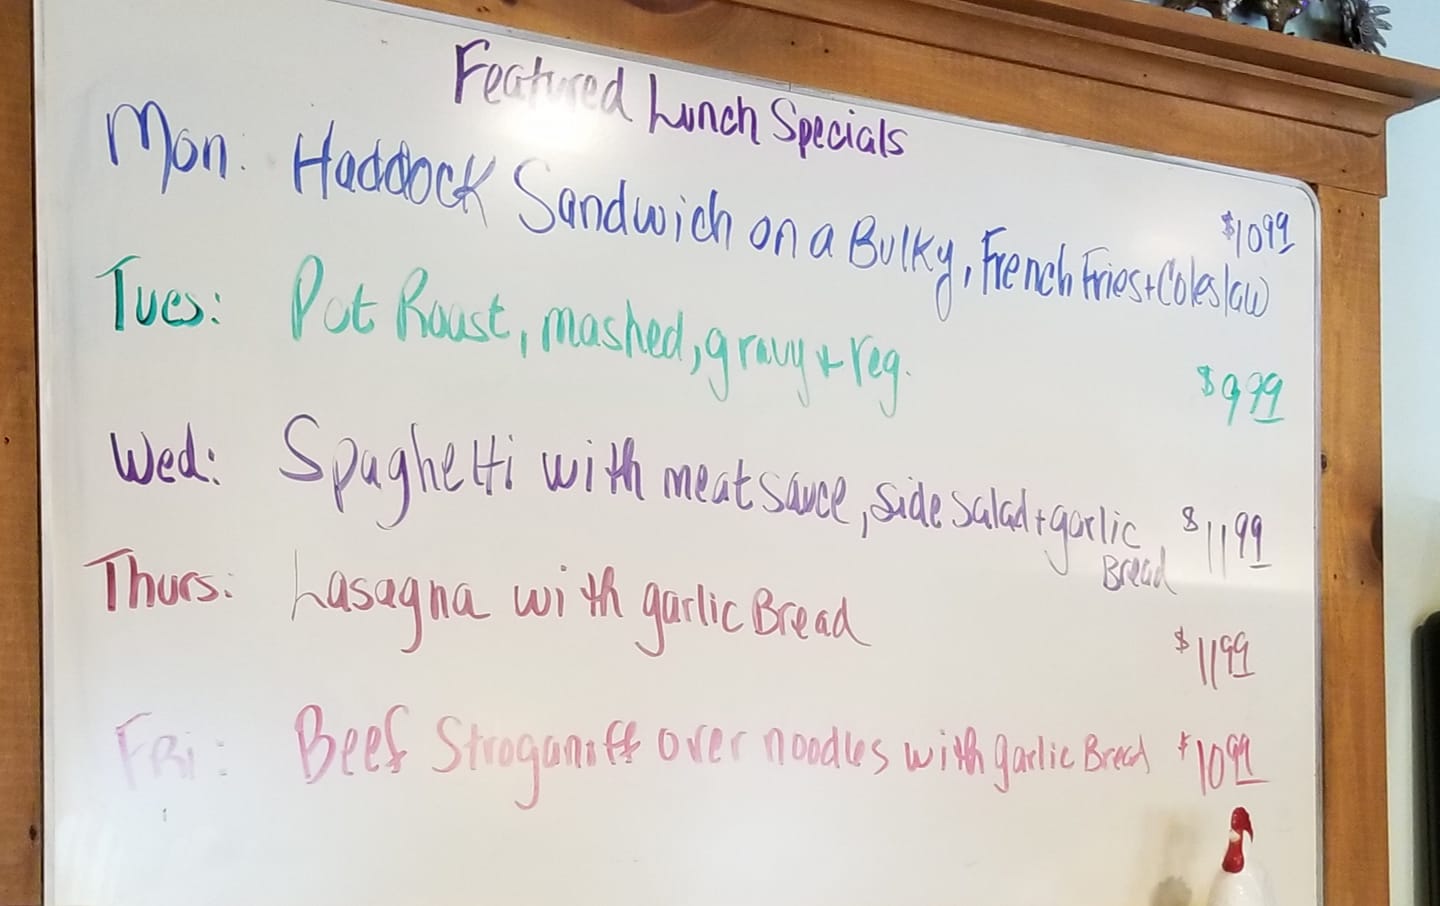 Featured Lunch Specials
Mon: Haddock Sandwich on a Bulky, French Fries + Coleslaw $10.99
Tues: Pot Roast, mashed, gravy + veg. $9.99
Wed: Spaghetti with meat sauce, side salad + garlic $11.99
Bread
Thurs: Lasagna with garlic Bread $11.99
Fri: Beef Stroganoff over noodles with garlic Bread $10.99